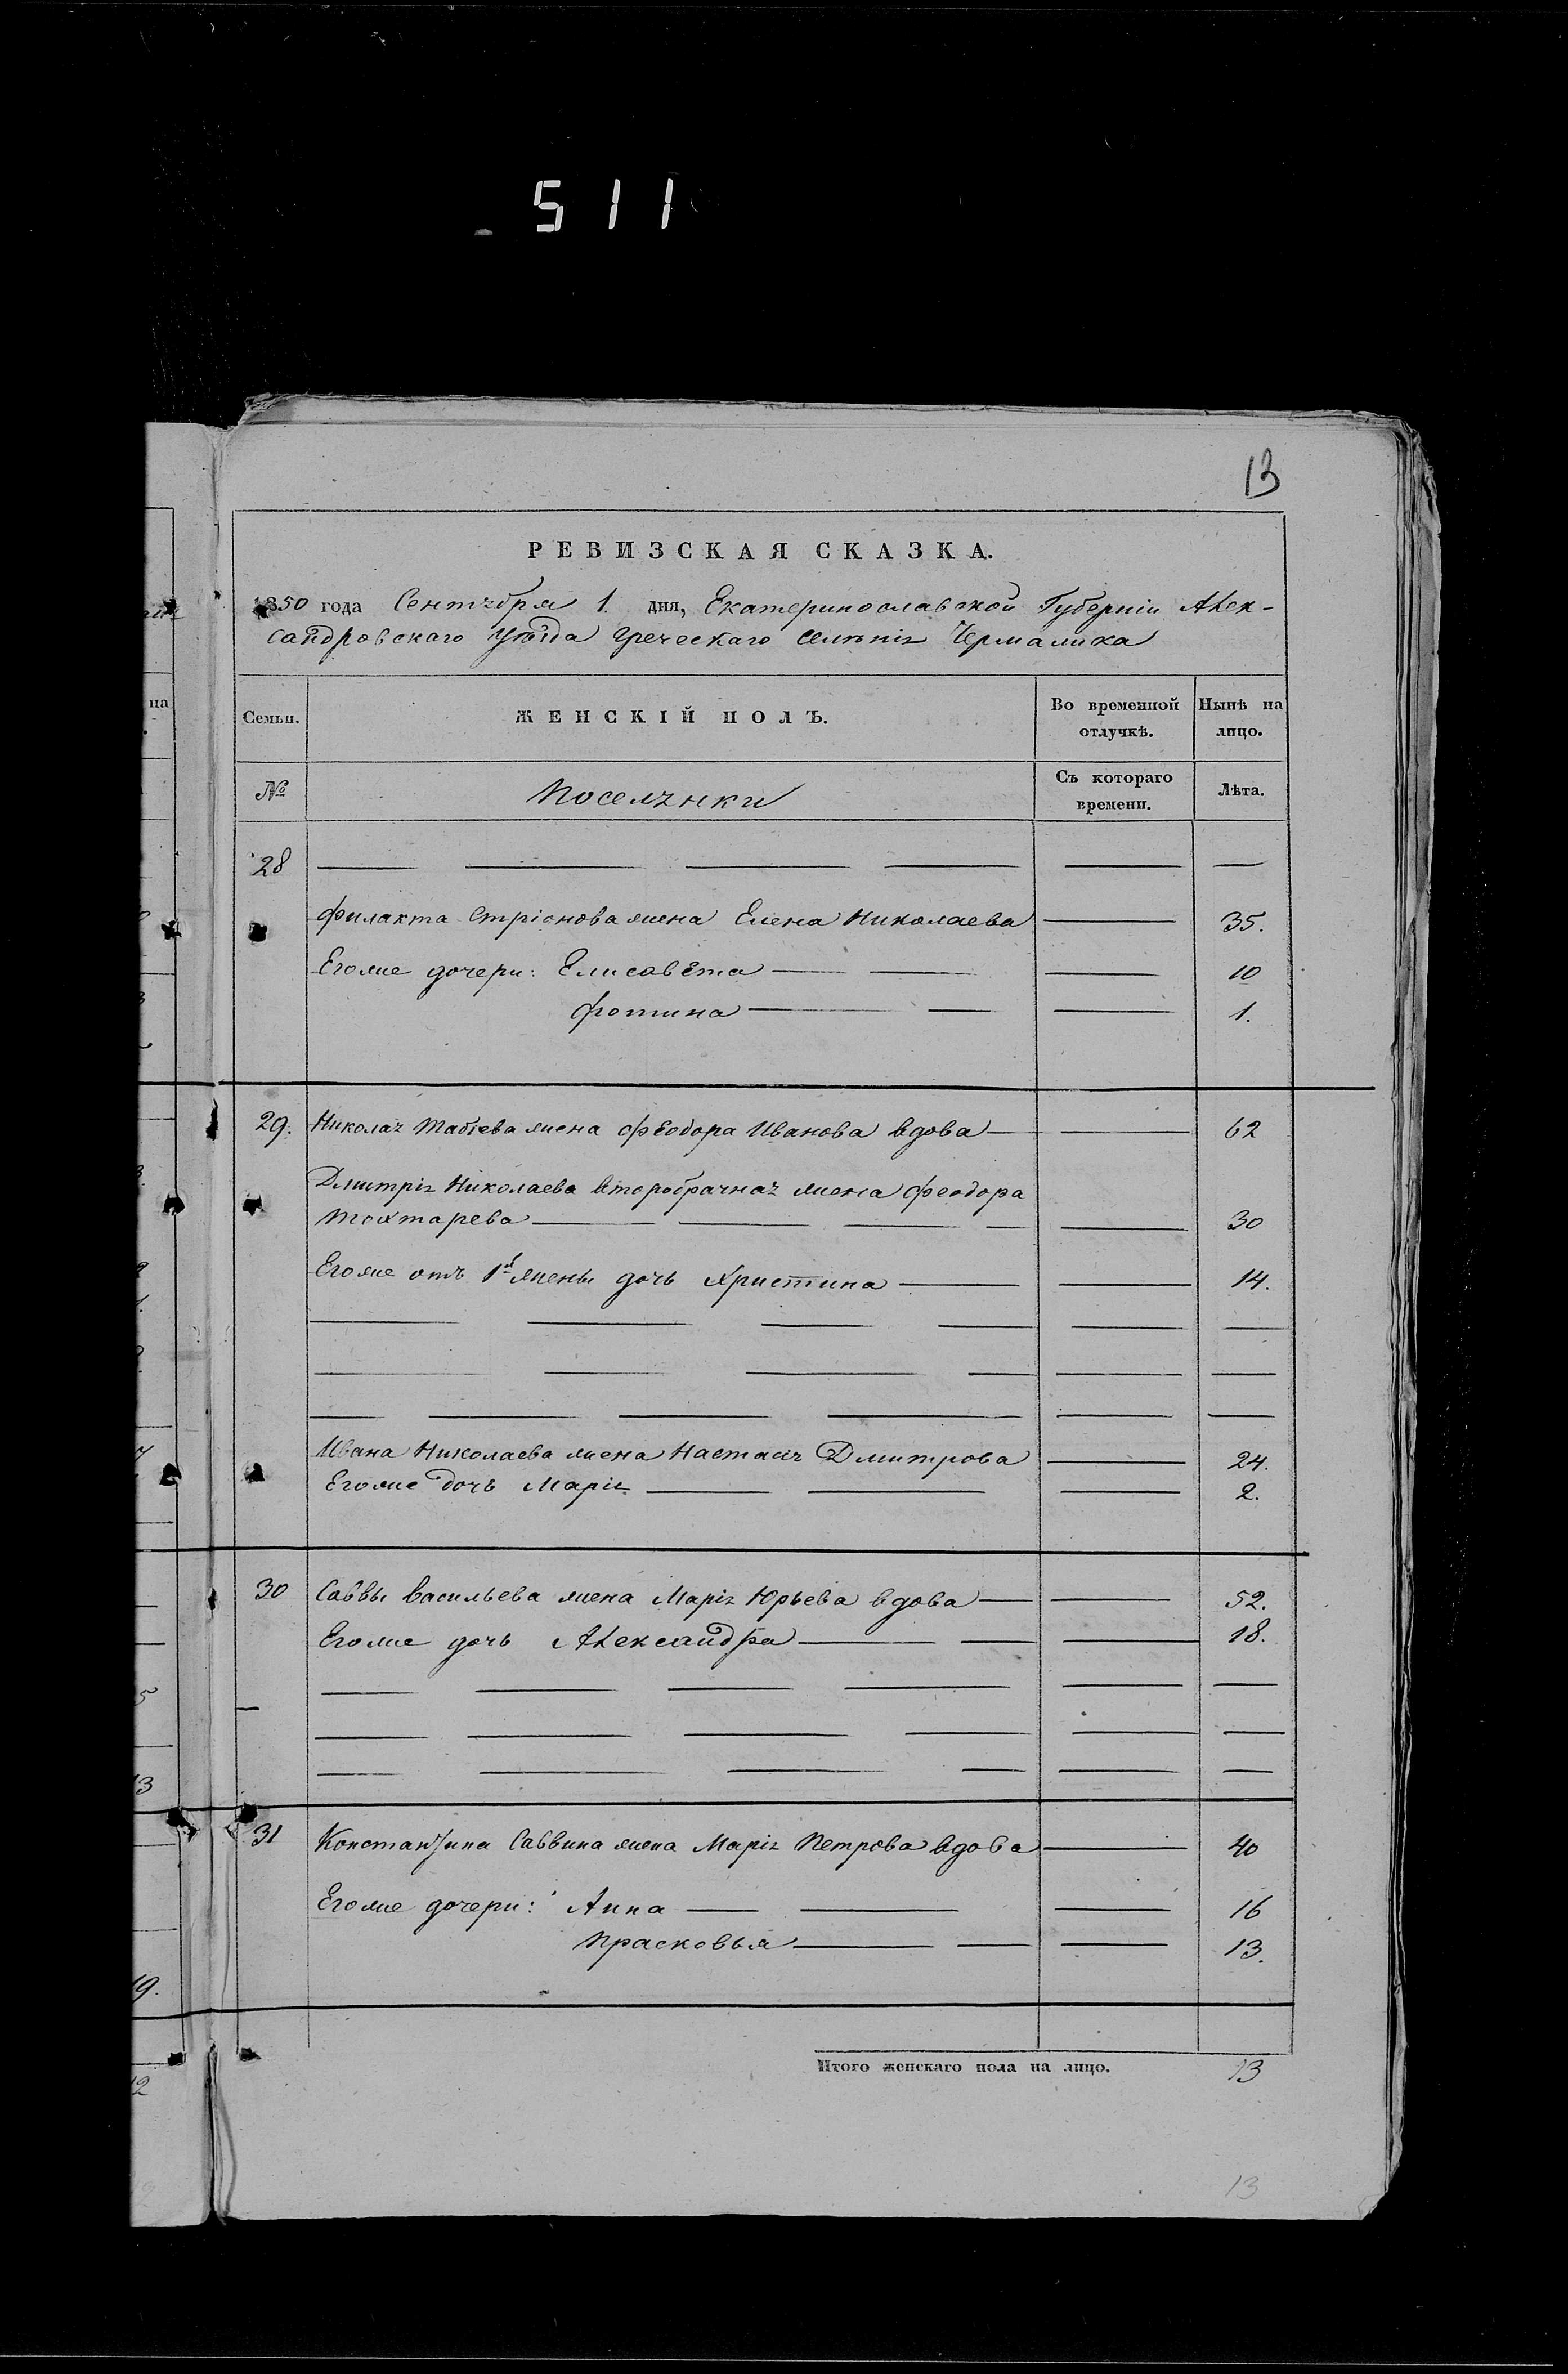 511
13
РЕВИЗСКАЯ СКАЗКА.
1850 года Сентября 1. дня, Екатеринославской Губерніи Алек-
сандровскаго Уѣзда Греческаго Селенія Чермалика
Семьи. ЖЕНСКІЙ ПОЛЪ. Во временной отлучкѣ. Нынѣ на лицо.
№ Поселянки Съ котораго времени. Лѣта.
28
Филакта Стріонова жена Елена Николаева 35.
Его же дочери: Елисавета 10
Фотина 1.
29. Николая Табѣева жена Феодора Иванова вдова 62
Дмитрія Николаева второбрачная жена Феодора
Тохтарева 30
Его же отъ 1й жены дочь Христина 14.
Ивана Николаева жена Настасія Дмитрова 24.
Его же дочь Марія 2.
30 Саввы Васильева жена Марія Юрьева вдова 52.
Его же дочь Александра 18.
31 Константина Саввина жена Марія Петрова вдова 40
Его же дочери: Анна 16
Прасковья 13.
Итого женскаго пола на лицо. 13
13